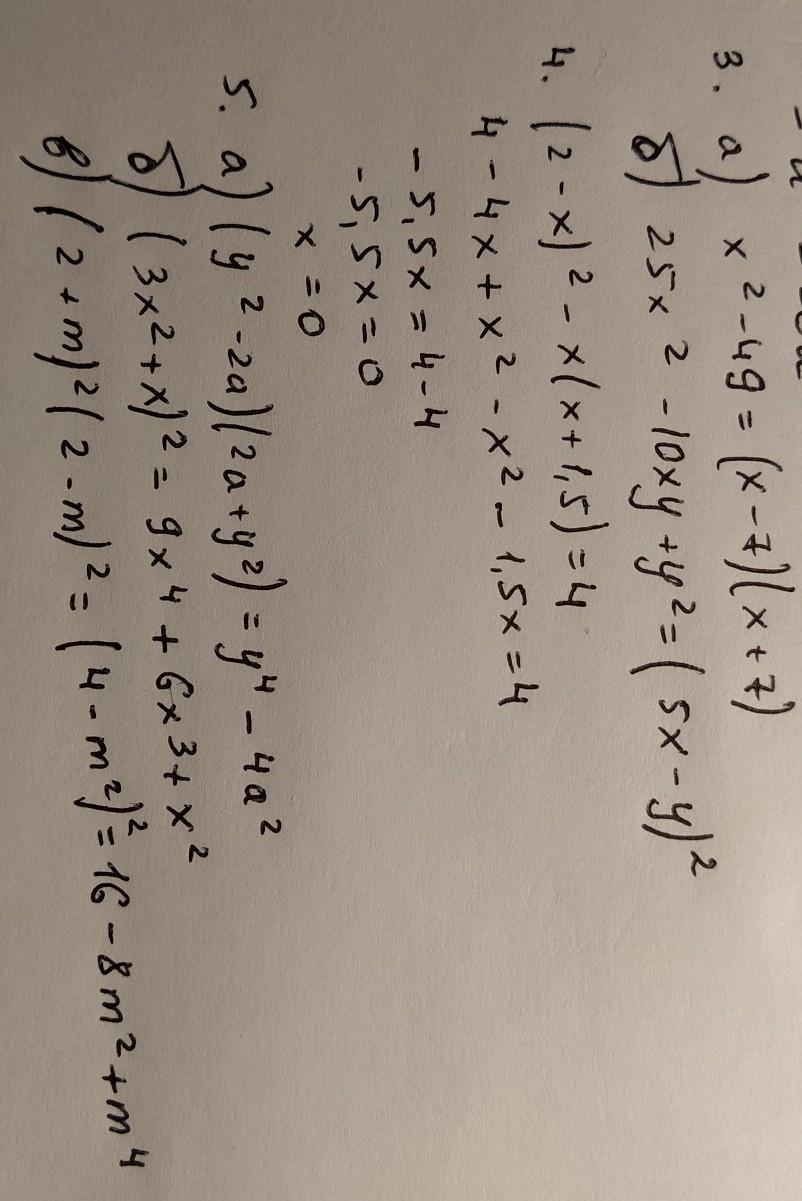 3. а) x² - 49 = (x - 7)(x + 7)
б) 25x² - 10xy + y² = (5x - y)²
4. (2 - x)² - x(x + 1,5) = 4
4 - 4x + x² - x² - 1,5x = 4
- 5,5x = 4 - 4
- 5,5x = 0
x = 0
5. а) (y² - 2a)(2a + y²) = y⁴ - 4a²
б) (3x² + x)² = 9x⁴ + 6x³ + x²
в) (2 + m)²(2 - m)² = (4 - m²)² = 16 - 8m² + m⁴